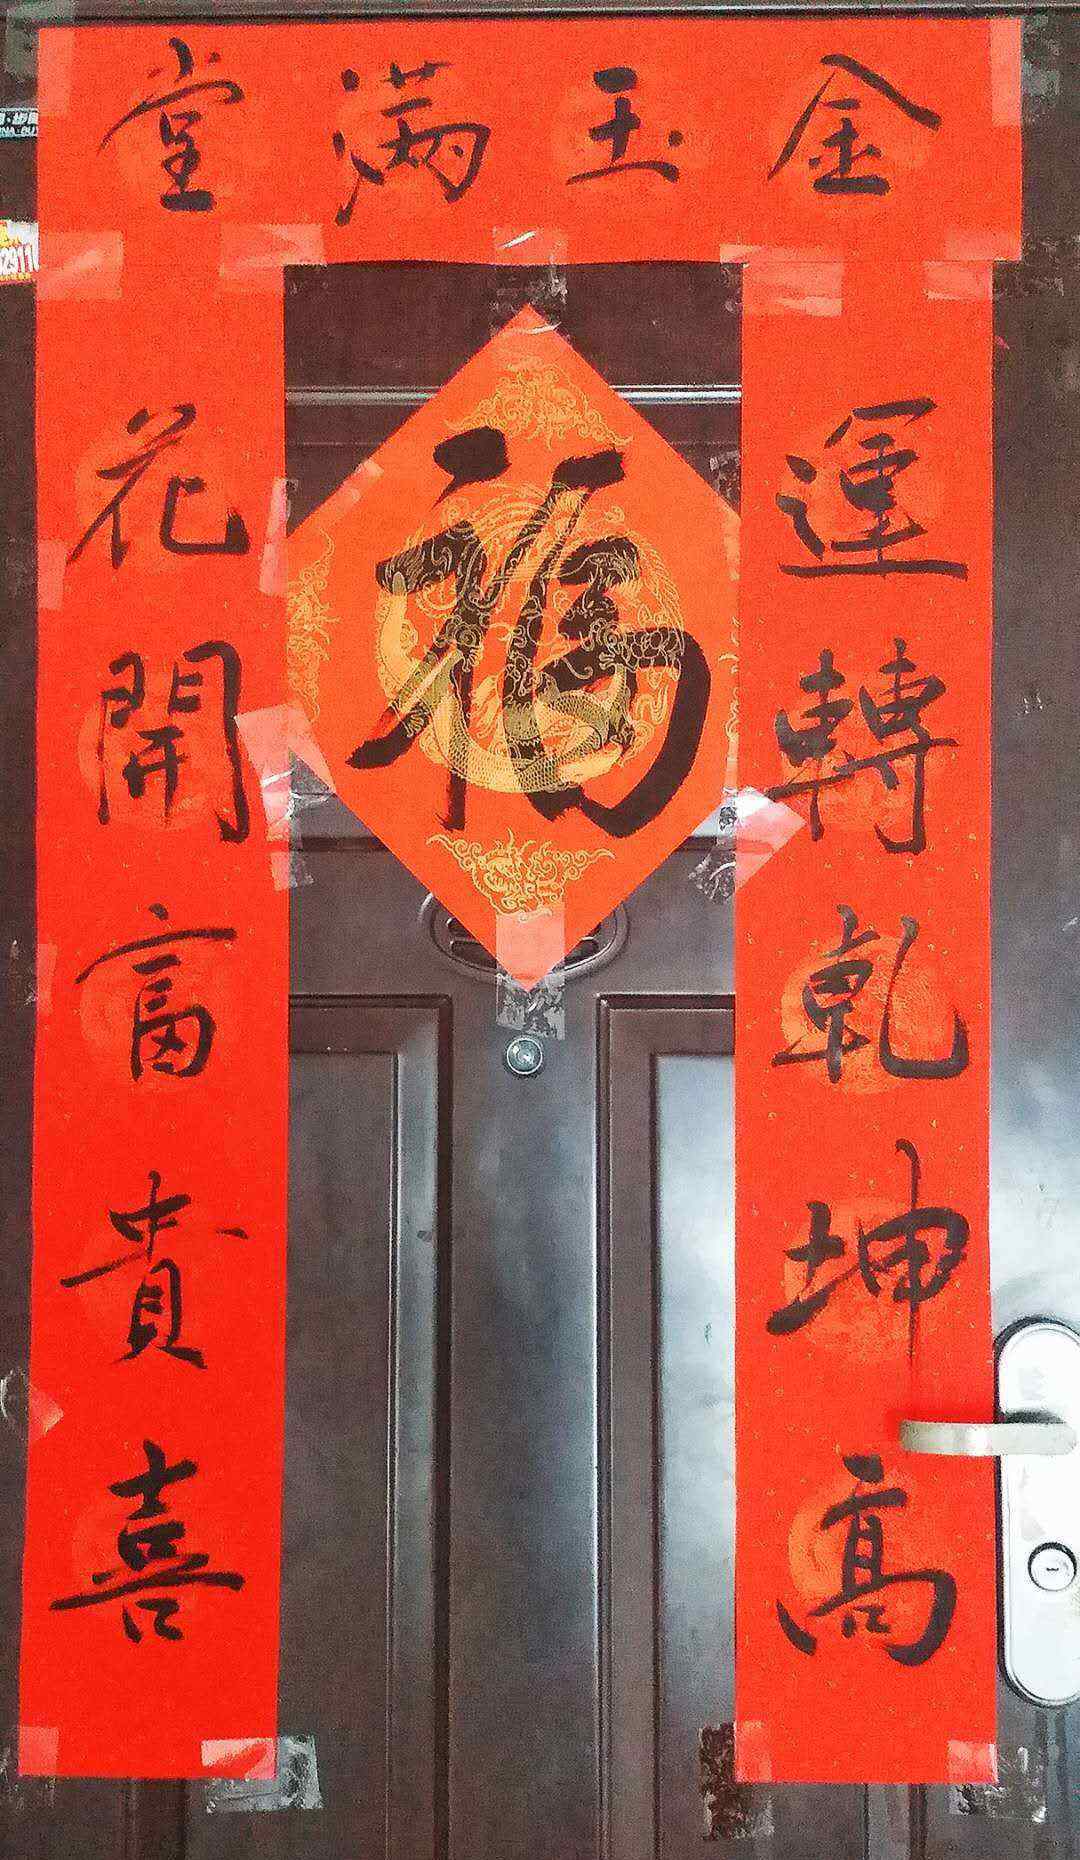 金玉满堂
運轉乾坤高
花開富貴喜
福
2911